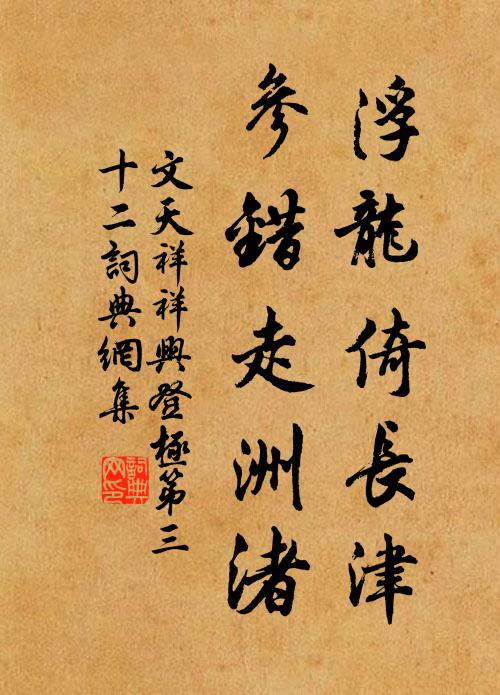 浮龍倚長津
參錯走洲渚
文天祥祥興登極第三
十二詞典網集
詞典網印